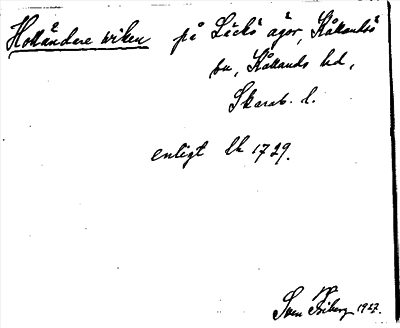 Holländare wiken på Läckö ägor, Kållandsö
sn, Kållands hd,
Skarab. l.
enligt lk 1729.
Sven Friberg 1927.